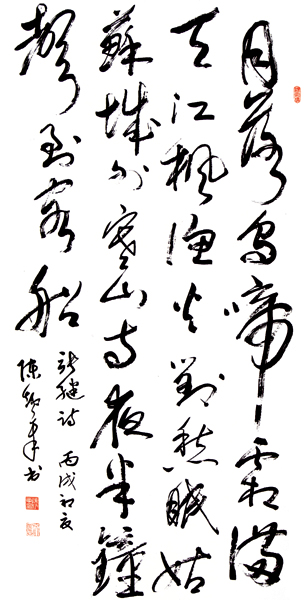 月落烏啼霜滿
天江楓漁火對愁眠姑
蘇城外寒山寺夜半鐘
聲到客船
張繼詩 丙戌初夏
陳 書